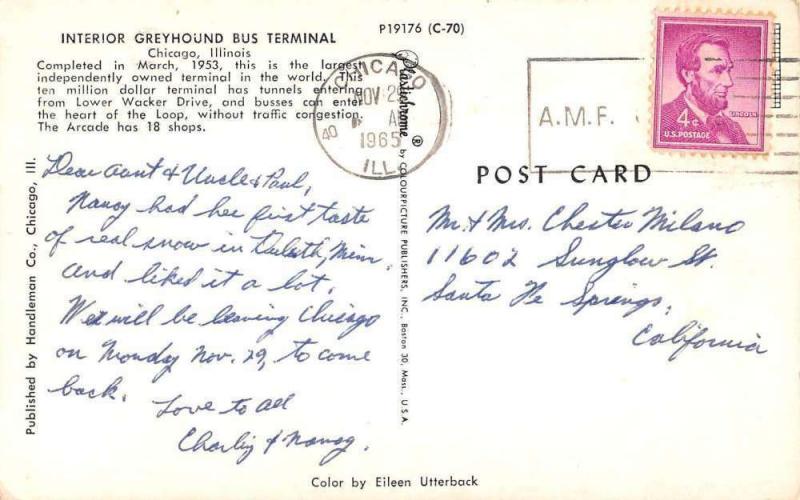 P19176 (C-70)
INTERIOR GREYHOUND BUS TERMINAL
Chicago, Illinois
Completed in March, 1953, this is the largest
independently owned terminal in the world. This
ten million dollar terminal has tunnels entering
from Lower Wacker Drive, and busses can enter
the heart of the Loop, without traffic congestion.
The Arcade has 18 shops.
CHICAGO
NOV 28
A
1965
40
ILL
A.M.F.
4¢
LINCOLN
U.S. POSTAGE
POST CARD
Dear Aunt & Uncle & Paul,
Nancy had her first taste
of real snow in Duluth, Minn.
and liked it a lot.
We will be leaving Chicago
on Monday Nov. 29, to come
back.
Love to all
Charley & Nancy.
Mr. & Mrs. Chester Milano
11602 Sunglow St.
Santa Fe Springs,
California
Published by Handleman Co., Chicago, Ill.
Plastichrome ® by COLOURPICTURE PUBLISHERS, INC., Boston 30, Mass., U.S.A.
Color by Eileen Utterback